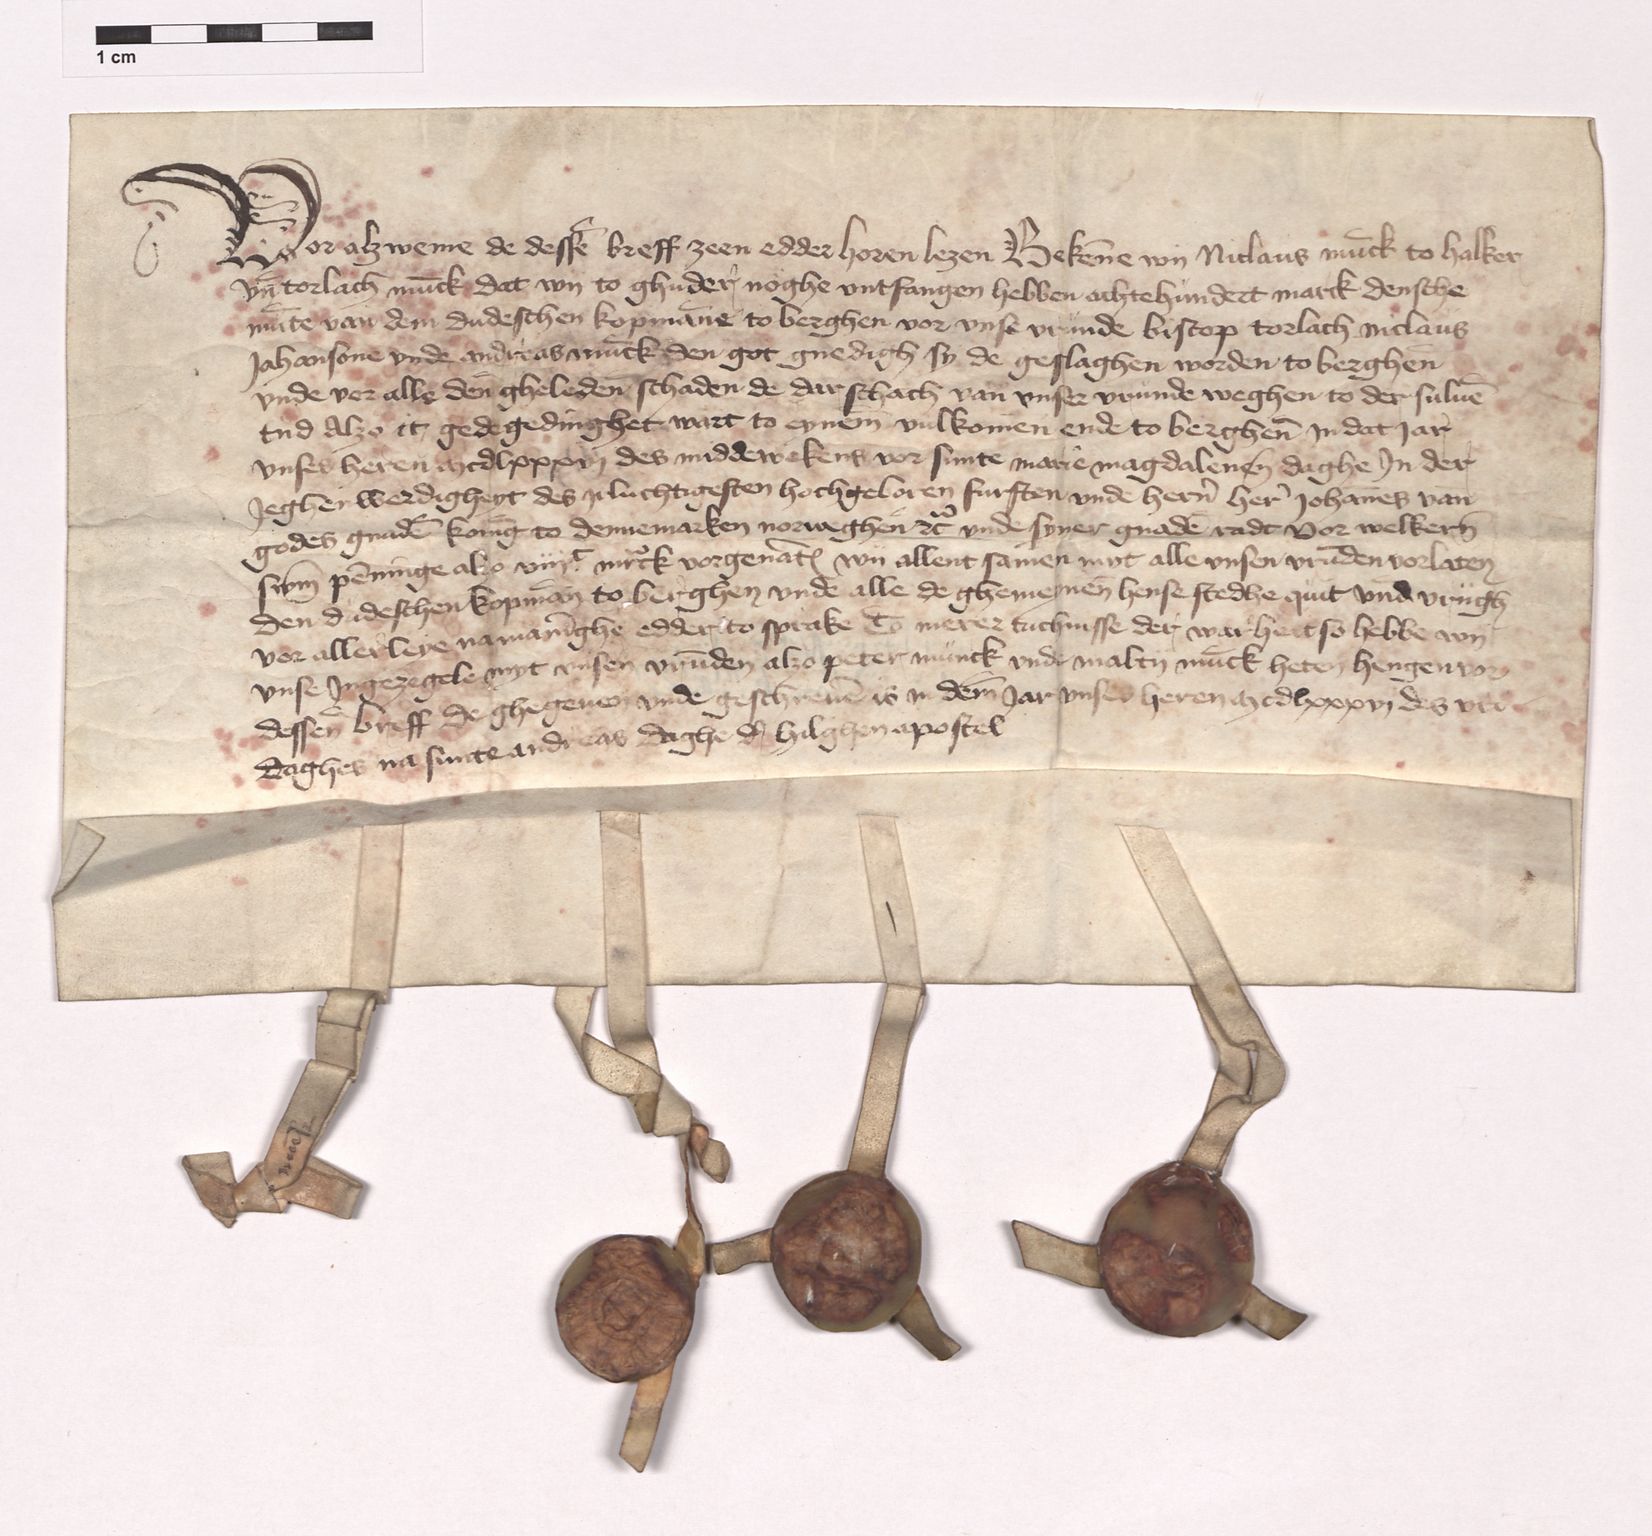 1 cm
Vor alzweme de dessē breff zeen edder horen lezen Bekēne wij Niclaus mūck to halker
vn̄ torlach mūck dat wij to ghuder noghe vntfangen hebben achtehundert marck densche
mūte van dem dudeschen kopmāne to berghen vor vnse vrunde biscop torlach niclaus
Johansone vnde andreas mūck den got gnedigh sy de geslaghen worden to berghen
vnde vor alle den gheleden schaden de dar schach van vnser vrunde weghen to der suluē
tud Alzo it gedegedinghet wart to eynem vulkomen ende to berghen In dat Jar
vnses heren Mcdlxxxvj des middewekens vor sunte marie magdalenen daghe In der
Jeghenwerdigheyt des Jrluchtigesten hochgeboren fursten vnde hern̄ her Johānes van
godes gnadē konīg to dennemarken norweghen ꝛc̄ vnde syner gnadē radt Vor welkern
sum̄ pēninge alzo viijᶜ mrck vorgenāt wij allent samen myt alle vnsen vrūden vorlaten
den dudeschen kopmān to berghen vnde alle de ghemeynen hense stedhe quit vnd vrijgh
vor allerleye namanīghe edder to sprake To merer tuchnisse der warheit so hebbe wij
vnse Ingezegele myt vnsen vrūden alzo peter munck vnde maltij mūck heten hengen vor
dessen breff de ghegeuen vnde geschreuē is in dem Jar vnses heren Mcdlxxxvj des
daghes na sunte andreas daghe d hilghen apostel